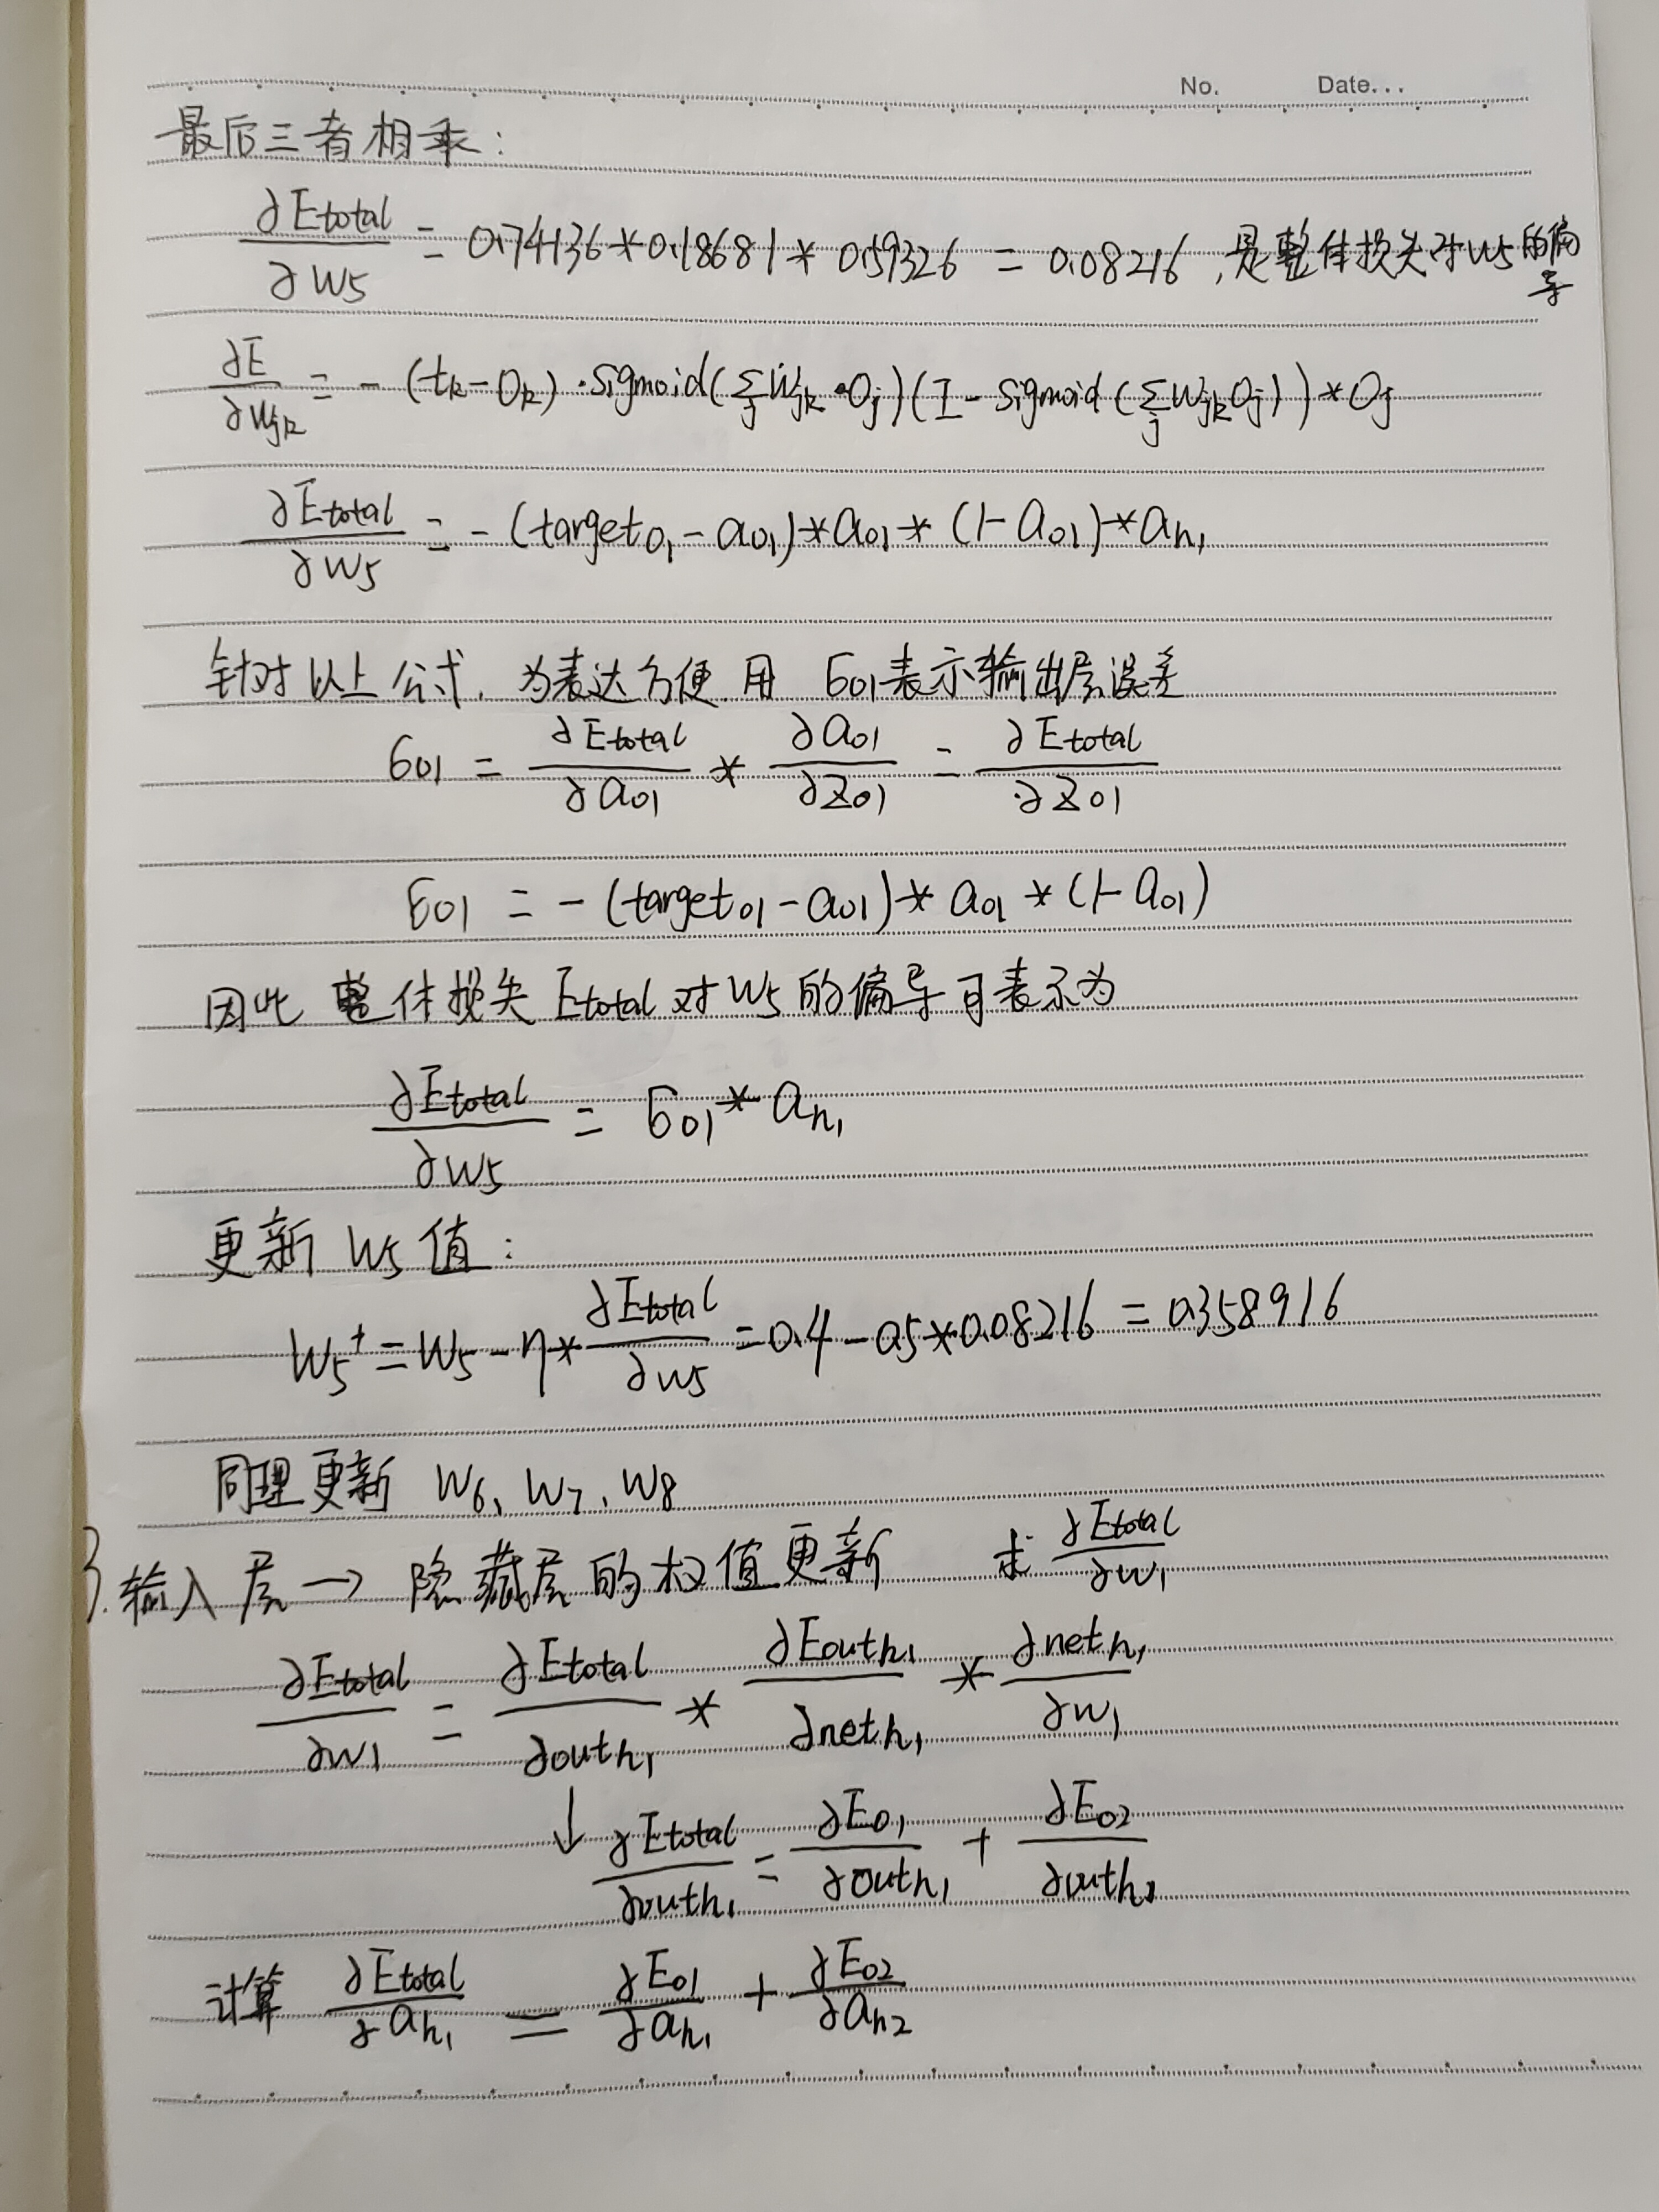 No. Date...
最后三者相乘：
∂Etotal/∂W5 = 0.74136*0.18681*0.59326 = 0.08216，是整体损失对W5的偏导
∂E/∂Wjk = -(tk-Ok)·Sigmoid(∑j Wjk·Oj)(I-Sigmoid(∑j WjkOj))*Oj
∂Etotal/∂W5 = -(targeto1-ao1)*ao1*(1-ao1)*ah1
针对以上公式，为表达方便 用 δo1表示输出层误差
δo1 = ∂Etotal/∂ao1 * ∂ao1/∂Zo1 = ∂Etotal/∂Zo1
δo1 = -(targeto1-ao1)*ao1*(1-ao1)
因此 整体损失Etotal对W5的偏导可表示为
∂Etotal/∂W5 = δo1*ah1
更新W5值：
W5+ = W5-η*∂Etotal/∂W5 = 0.4-0.5*0.08216 = 0.358916
同理更新 W6、W7、W8
3.输入层→隐藏层的权值更新 求∂Etotal/∂W1
∂Etotal/∂W1 = ∂Etotal/∂outh1 * ∂Eouth1/∂neth1 * ∂neth1/∂W1
↓ ∂Etotal/∂outh1 = ∂Eo1/∂outh1 + ∂Eo2/∂outh1
计算 ∂Etotal/∂ah1 = ∂Eo1/∂ah1 + ∂Eo2/∂ah2